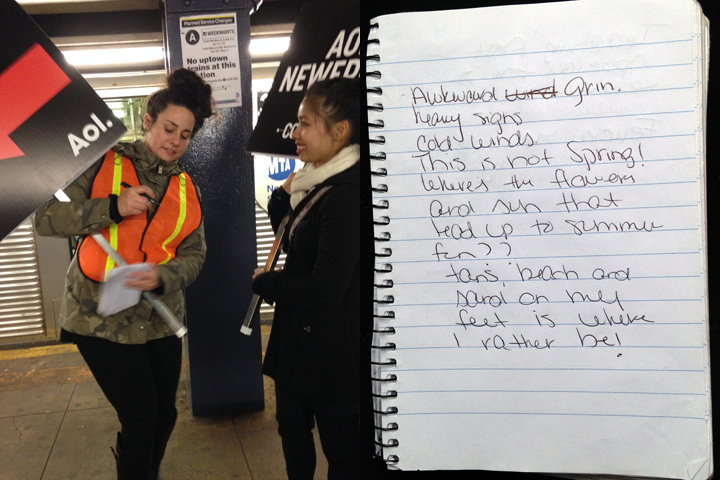 Planned Service Changes
A
WEEKNIGHTS
No uptown
trains at this
station
Aol.
AO
NEWER
CO
MTA
Awkward Grin.
heavy signs
cold winds.
This is not Spring!
Where's the flowers
and sun that
lead up to summer
fun??
tans, beach and
sand on my
feet is where
I rather be!